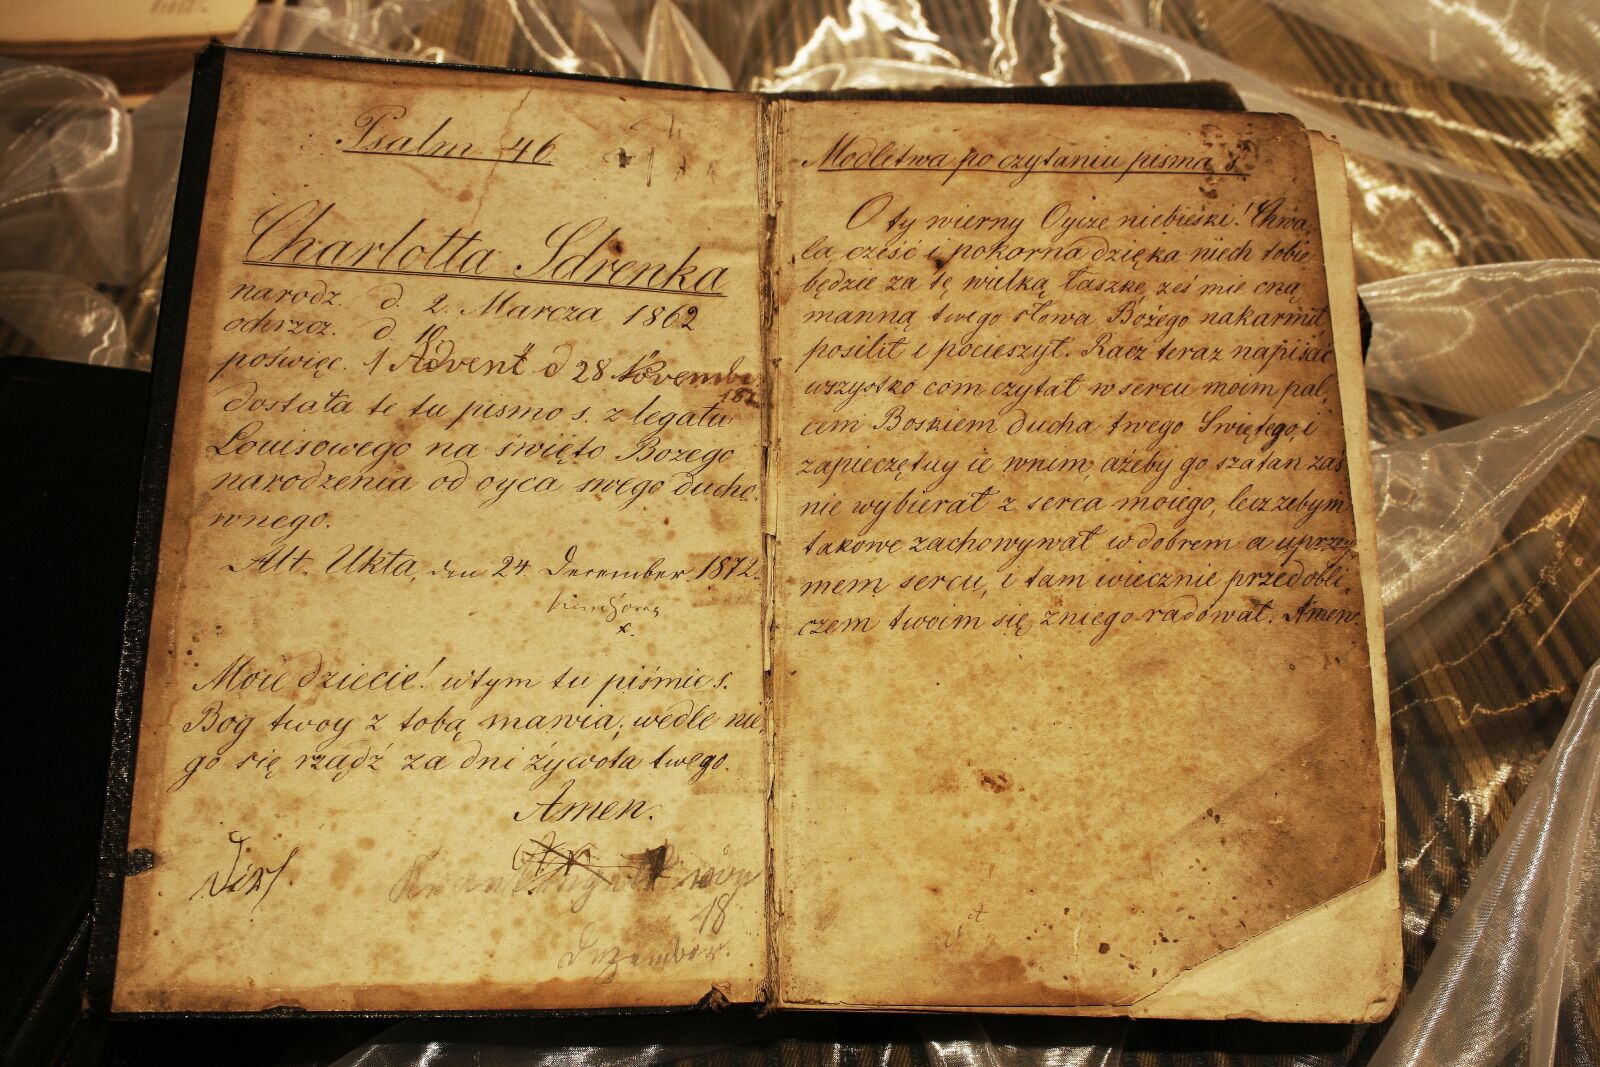 Psalm 46
Charlotta Sdrenka
narodz. d. 2. Marcza 1862
ochrzcz. d. 10.
poświęc. 1 Advent d 28 November
187
dostała te tu pismo s. z legatu
Louisowego na święto Bozego
narodzenia od oyca swego ducho-
wnego.
Alt. Ukta, den 24. December 1872.
x.
Moie dziecie! w tym tu piśmie s.
Bog twoy z tobą mawia; wedle nie,
go się rządź za dni żywota twego.
Amen.
18
Dezember.
Modlitwa po czytaniu pisma s.
O ty wierny Oycze niebieski! Chwa,
la, cześć i pokorna dzięka niech tobie
będzie za tę wielką łaszkę, ześ mie cną
manną twego słowa Bożego nakarmił,
posilił i pocieszył. Racz teraz napisać
wszystko com czytał w sercu moim pal,
cem Boskiem ducha twego Swiętego, i
zapieczętuy ie wnim, ażeby go szatan zaś
nie wybierał z serca moiego, lecz zebym
takowe zachowywał w dobrem a uprzey
mem sercu, i tam wiecznie przed obli,
czem twoim się zniego radował. Amen.